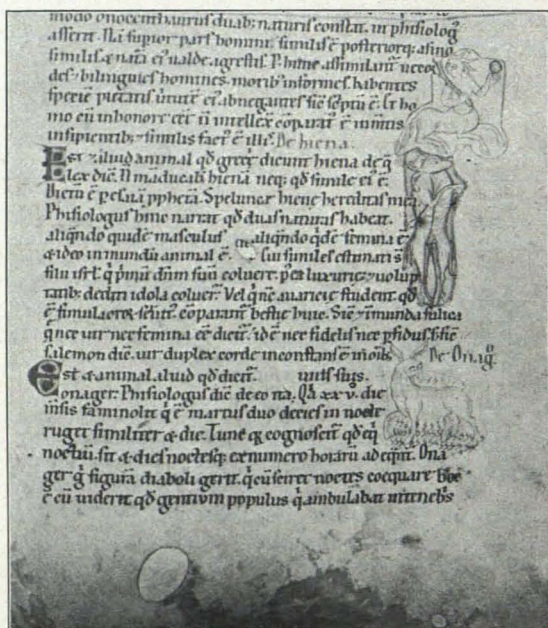 modo onocenthaurus duab; naturis constat. in phisiolog
asserit. Nā supior pars homini similis ē posteriorq; asino
similis & natā ei' valde agrestis. huic assimilant viceo
des. bilingues homines. morib' informes. habentes
speciē pietatis virtutē ei' abnegantes sic septū ē. & ho
mo cū in honore eēt ñ intellex cōparat' ē iumtis
insipientib; & similis fact' ē illis. De hiena.
Est & aliud animal qd grece dicunt hiena de q
lex dic. Ñ maducabi hienā neq; qd simile ei ē.
Dictū ē p esaiā pphetā. Spelunca hiene hereditas mea
Phisiologus hinc narrat qd duas naturas habeat.
aliqndo quidē masculus aliqndo qdē femina ē
& ideo inmundū animal ē. cui similes estimati s
filii isrl. q primū dnm suū coluerē. p'ea luxurie & volup
tatib; dediti idola coluer. Vel qnc avaricie student qd
ē simulacrorū servit' cōparant' bestie huic. Sic & inmunda
qnec vir nec femina eē dicit'. id ē nec fidelis nec pfidus. sic
salemon dic. vir duplex corde inconstans ē in oīb; De Onag'
Est & animal aliud qd dicit'. viis suis.
onager. Phisiologus dic de eo na. Qā xxv. die
msis famīnoht q ē martius duo decies in nocte
rugit similiter & die. Tunc q cognoscit' qd eq
noctiū. sit & dies noctesq; & numero horarū adequt. Ona
ger g figurā diaboli gerit. q cū sciret noctes coequare
ē cū viderit qd gentium populus q ambulabat in tenebs